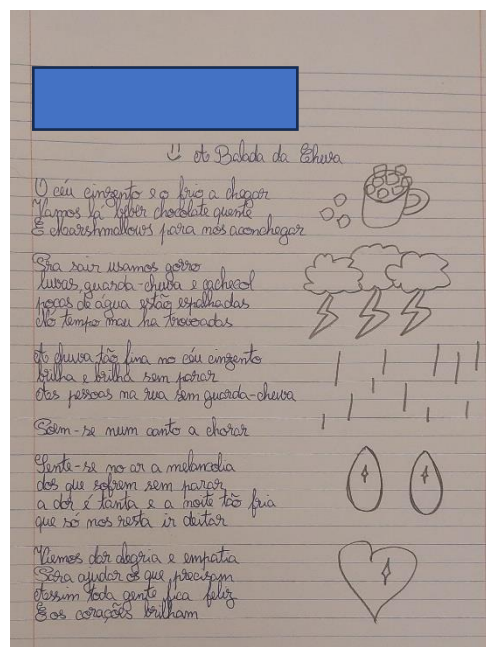 A Balada da Chuva
O céu cinzento e o frio a chegar
Vamos lá beber chocolate quente
E Marshmallows para nos aconchegar
Pra sair usamos gorro
luvas, guarda-chuva e cachecol
poças de água estão espalhadas
No tempo mau há trovoadas
A chuva tão fina no céu cinzento
brilha e brilha sem parar
As pessoas na rua sem guarda-chuva
Põem-se num canto a chorar
Sente-se no ar a melancolia
dos que sofrem sem parar
a dor é tanta e a noite tão fria
que só nos resta ir deitar
Viemos dar alegria e empatia
Para ajudar os que precisam
Assim toda gente fica feliz
E os corações brilham